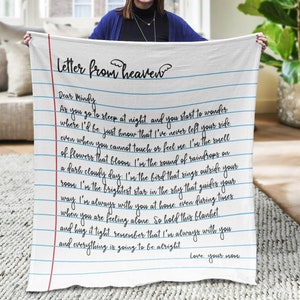 Letter from heaven
Dear Mindy
As you go to sleep at night, and you start to wonder
where I'd be, just know that I've never left your side
even when you cannot touch or feel me. I'm the smell
of flowers that bloom. I'm the sound of raindrops on
a dark cloudy day. I'm the bird that sings outside your
room. I'm the brightest star in the sky that guides your
way. I'm always with you at home, even during times
when you are feeling alone. So hold this blanket
and hug it tight, remember that I'm always with you
and everything is going to be alright.
Love, your mom.